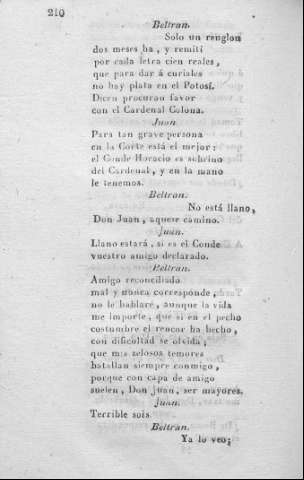 210
Beltran.
Solo un renglon
dos meses ha, y remití
por cada letra cien reales,
que para dar á curiales
no hay plata en el Potosí.
Dicen procuran favor
con el Cardenal Colona.
Juan
Para tan grave persona
en la Corte está el mejor:
el Conde Horacio es sobrino
del Cardenal, y en la mano
le tenemos.
Beltran.
No está llano,
Don Juan, aquese camino.
Juan.
Llano estará, si es el Conde
vuestro amigo declarado.
Beltran.
Amigo reconciliado
mal y nunca corresponde,
no le hablaré, aunque la vida
me importe, que si en el pecho
costumbre el rencor ha hecho,
con dificultad se olvida;
que mis zelosos temores
batallan siempre conmigo,
porque con capa de amigo
suelen, Don Juan, ser mayores.
Juan.
Terrible sois
Beltran.
Ya lo veo;